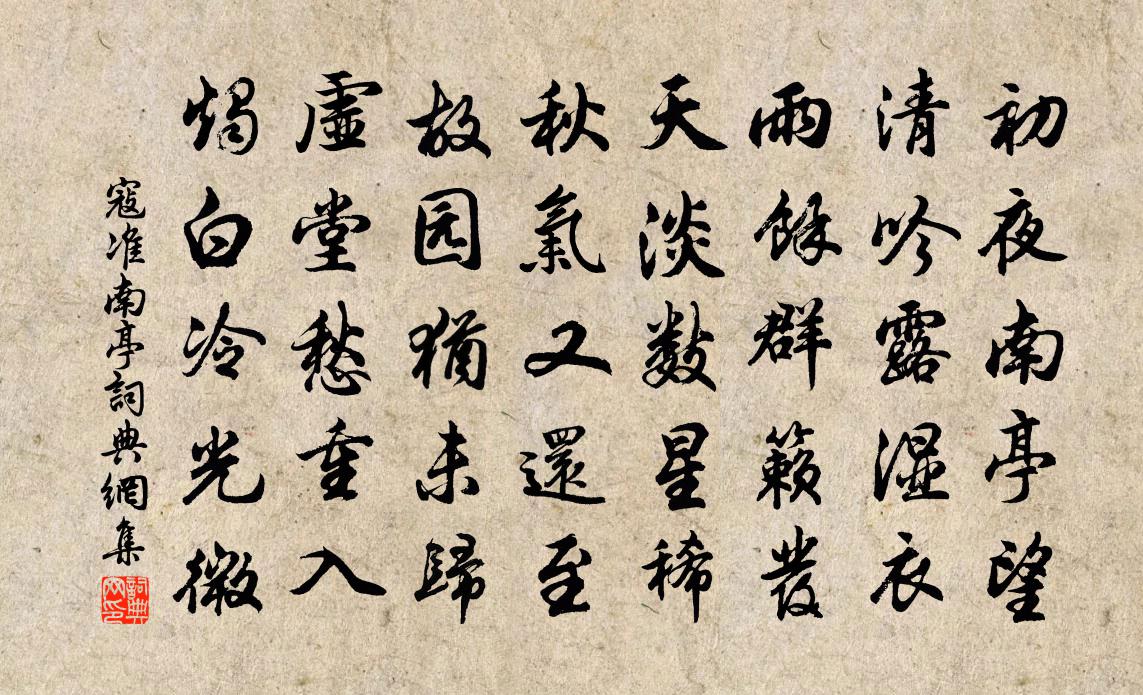 初夜南亭望
清吟露湿衣
雨餘群籟發
天淡數星稀
秋氣又還至
故园猶未歸
虛堂愁重入
燭白冷光微
寇准南亭詞典網集
詞典网印